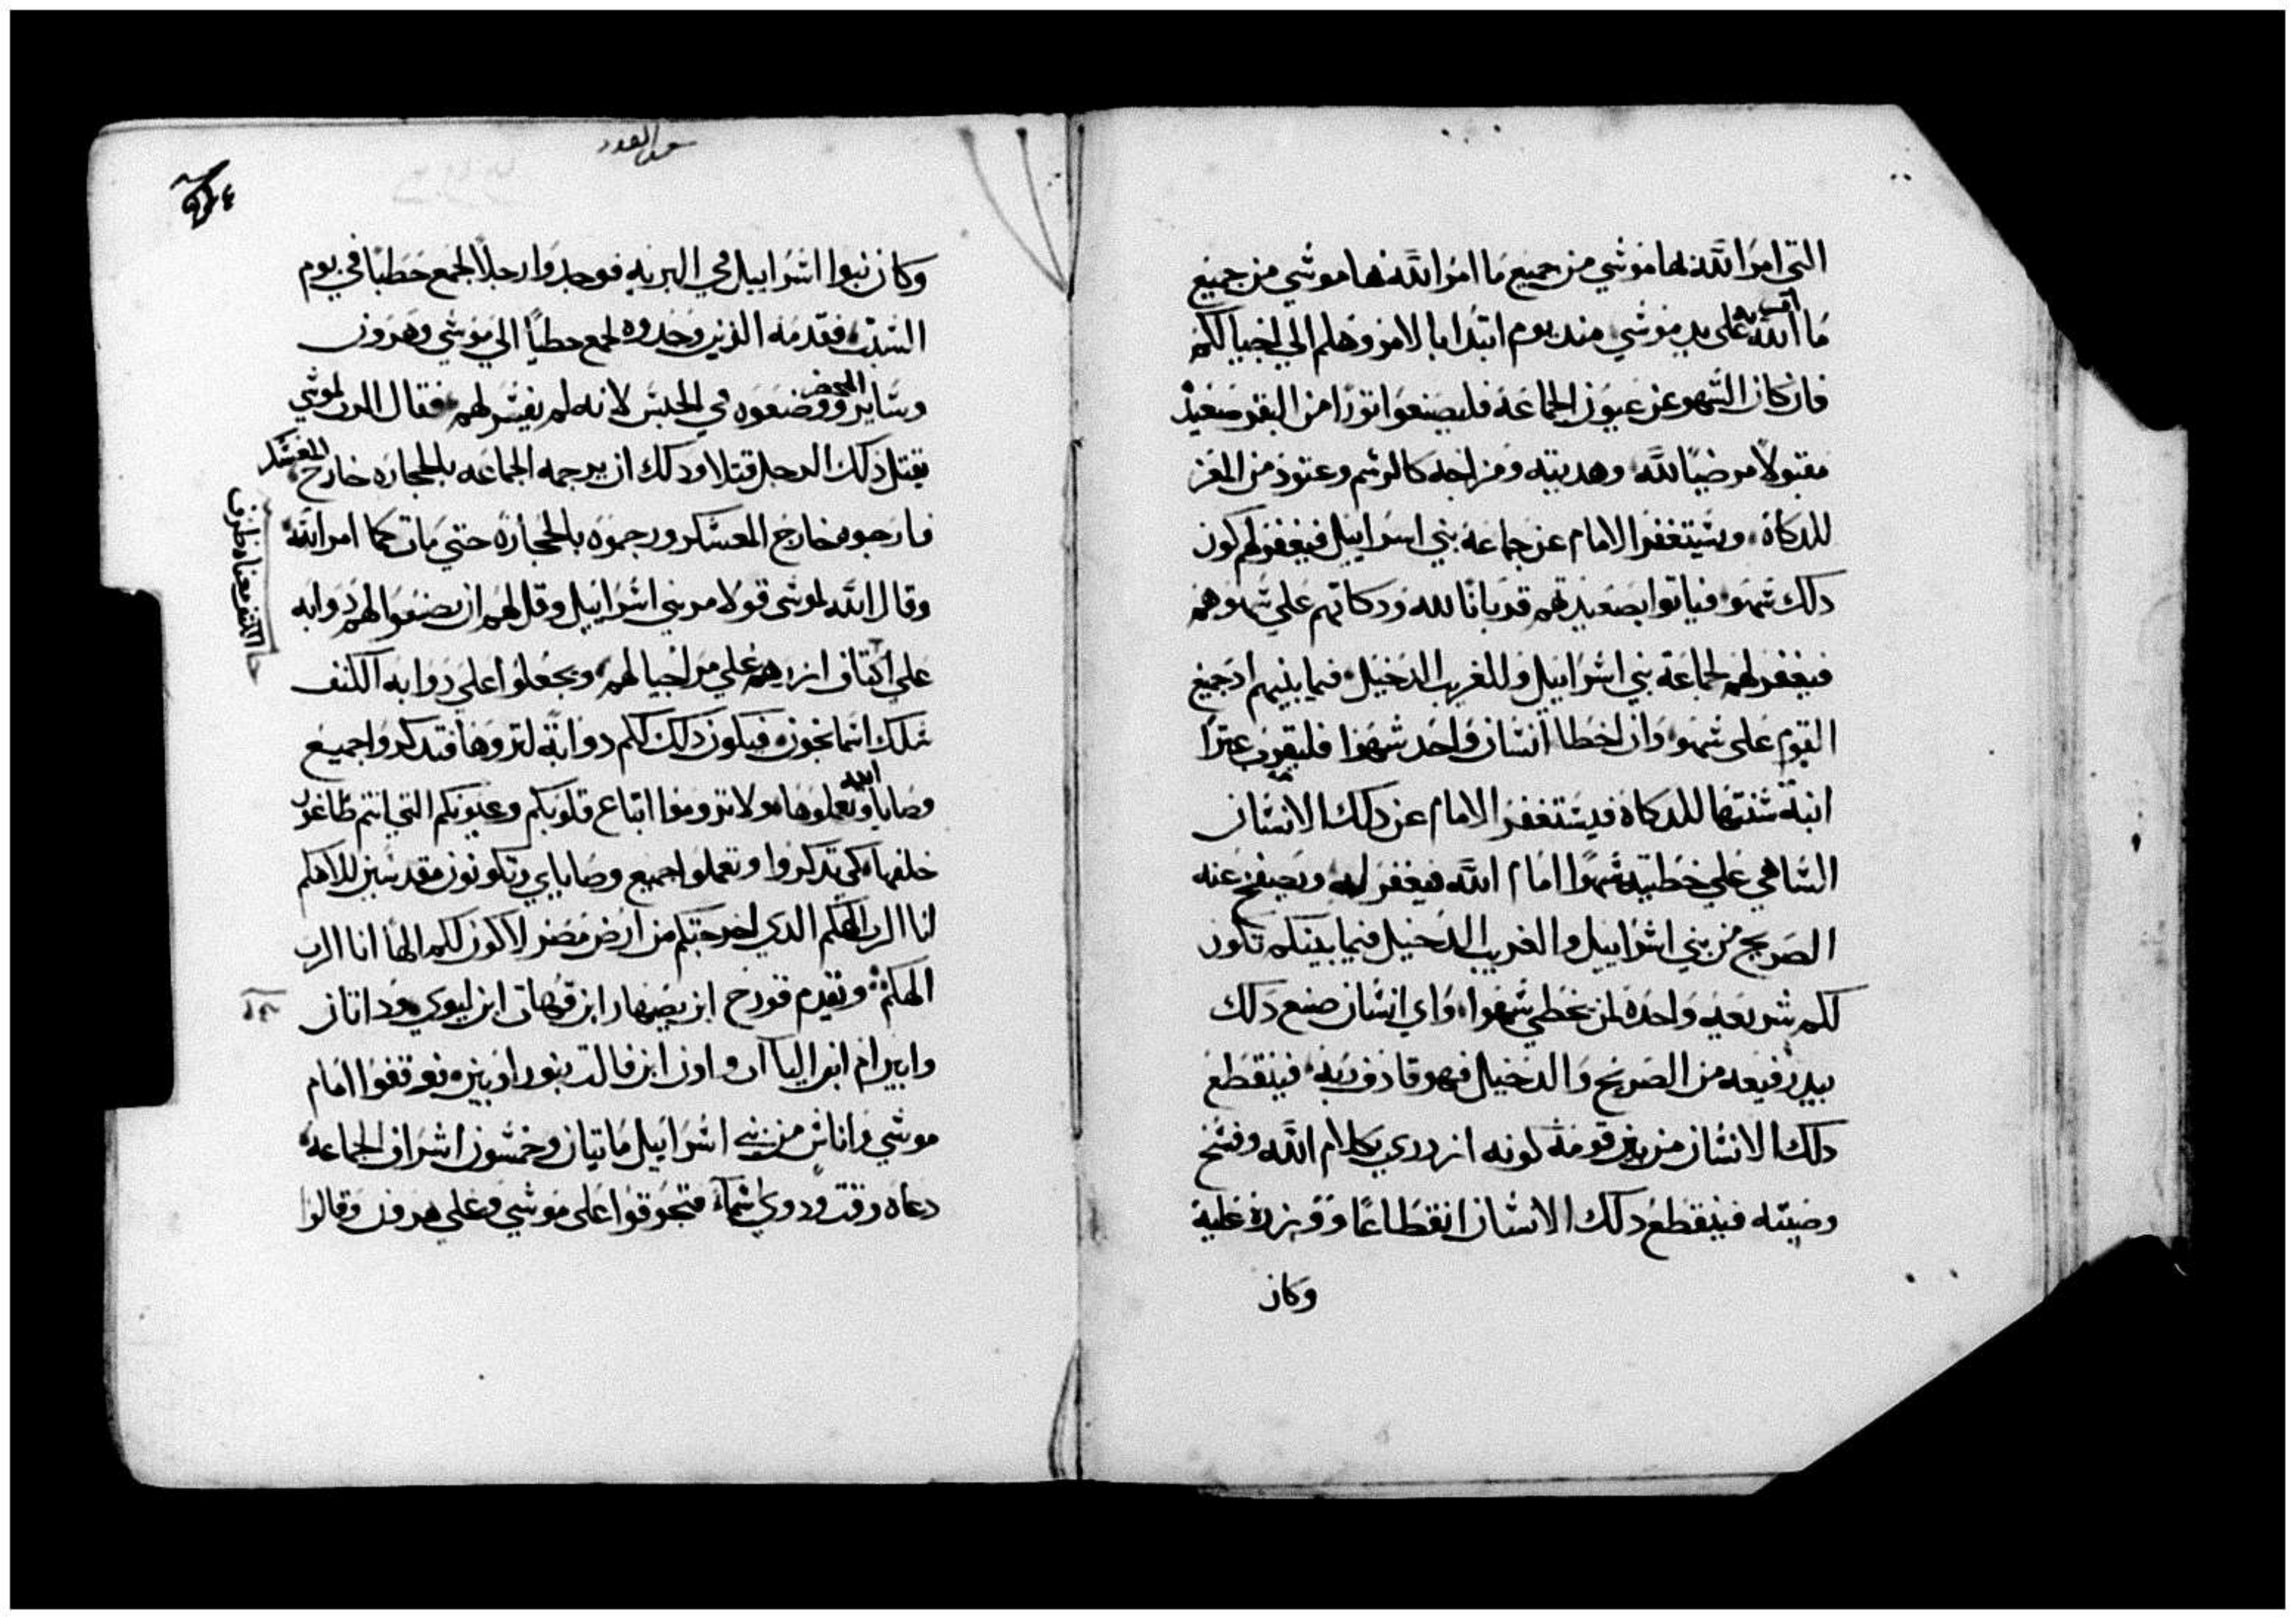 التي امر الله بها موشي من جميع ما امر الله بها موشي من جميع
ما امر الله به على يد موشي مند يوم ابتدا بالامر وهلم الي اجيالكم
فان كان الشهو عن عيون الجماعة فليصنعوا تورا من البقر صعيد
مقبولا مرضيا لله وهديته ومزاجه كالرشم وعتود من المعز
للدكاة ويشتغفر الامام عن جماعة بني اسراييل فيغفر لهم كون
دلك شهو فياتوا بصعيدتهم قربانا لله ودكاتهم علي شهوهم
فيغفر لهم لجماعة بني اشراييل وللغريب الدخيل فيما بينهم اد جميع
القوم على شهو وان اخطا انشان واحد شهوا فليقرب عنزا
ابنة شنتها للدكاة فيشتغفر الامام عن دلك الانشان
الشاهي علي خطيته شهوا امام الله فيغفر له ويصفح عنه
الصريح من بني اشراييل والغريب الدخيل فيما بينكم تكون
لكم شريعه واحدة لمن يخطي شهوا واي انشان صنع دلك
بيد رفيعه من الصريح والدخيل فهو قادف ربه فينقطع
دلك الانشان من بين قومه كونه ازدري بكلام الله وفشخ
وصيته فينقطع دلك الانشان انقطاعا ووزره عليه
وكان
سفر العدد
وكان بنوا اشراييل في البريه فوجدوا رجلا يجمع حطبا في يوم
الشبت فقدمه الذين وجدوه يجمع حطبا الي موشي وهرون
وشاير المحضر ووضعوه في الحبش لانه لم يفشر لهم فقال الرب لموشي
يقتل ذلك الرجل قتلا ودلك ان يرجمه الجماعه بالحجاره خارج المعشكر
فاخرجوه خارج المعشكر ورجموه بالحجارة حتي مات كما امر الله
وقال الله لموشى قولا مر بني اشراييل وقل لهم ان يصنعوا لهم دوابه
على اكناف ازرهم علي مر اجيالهم ويجعلوا على دوابه الكنف
شلك اشمانجون فيكون دلك لكم دوابة لتروها فتدكروا جميع
وصايا الله وتعملوها ولا تروموا اتباع قلوبكم وعيونكم التي انتم طاغون
خلفها كي تدكروا وتعملوا جميع وصاياي وتكونون مقدشين للاهكم
انا الرب الهكم الدي اخرجتكم من ارض مصر لاكون لكم الها انا الرب
الهكم وتقدم قورح ابن يصهار ابن قهات ابن ليوي وداتان
وابيرام ابنا الياآب واون ابن فالت بنو راوبين فوقفوا امام
موشي واناش من بني اشراييل ماتيان وخمشون اشراف الجماعه
دعاه وقت ودوي اشما فتجوقوا على موشي وعلي هرون وقالوا
الكنف معناه طرف